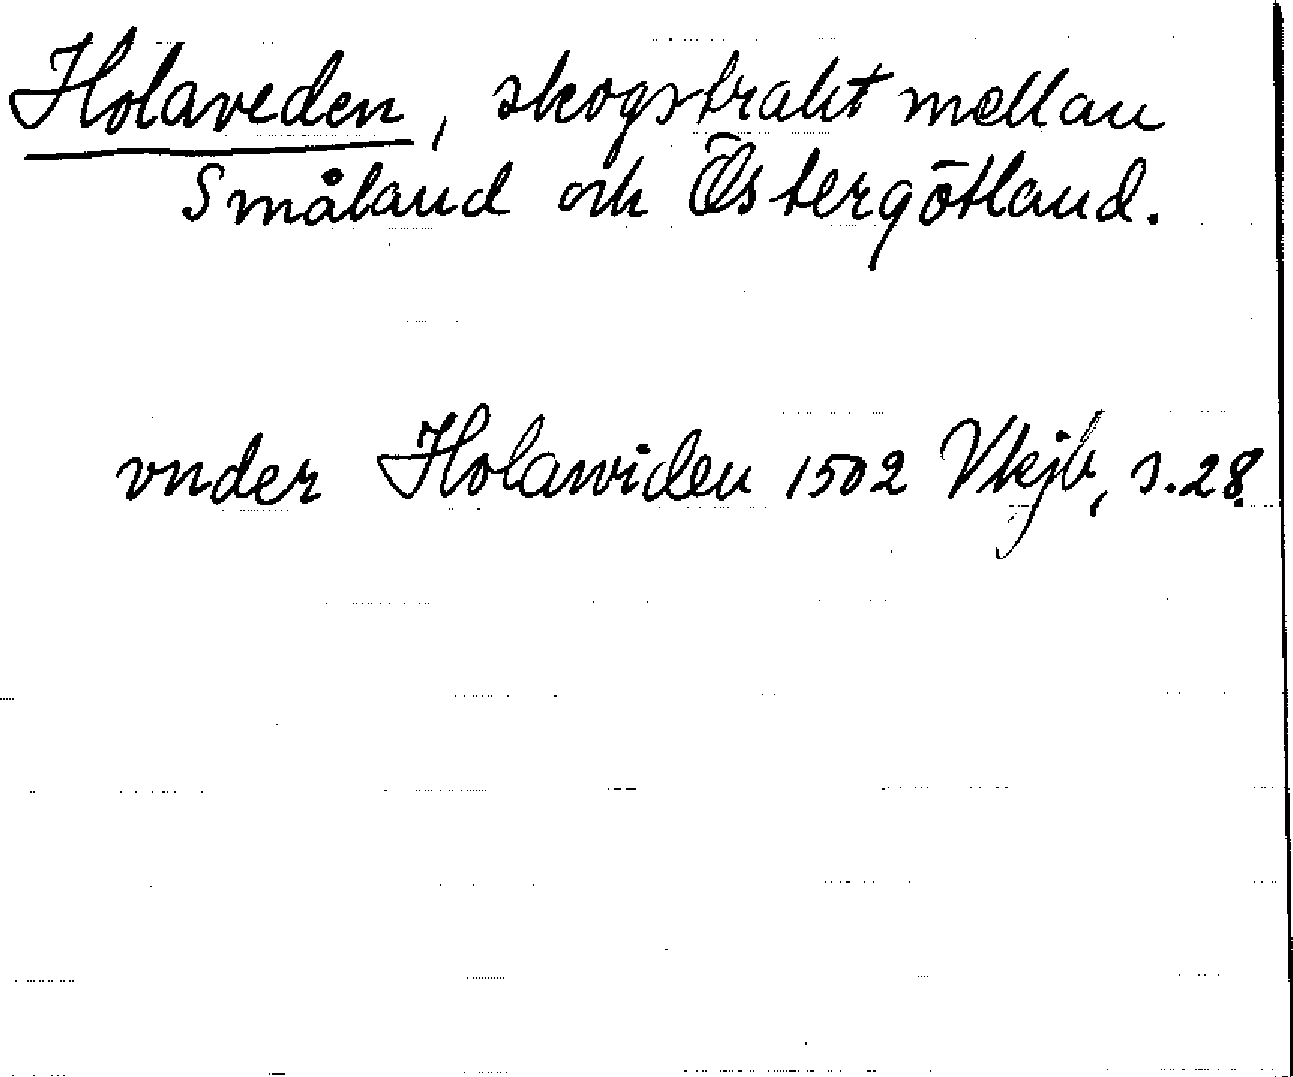 Holaveden, skogstrakt mellan
Småland och Östergötland.
vnder Holawiden 1502 Vkjb, s. 28.